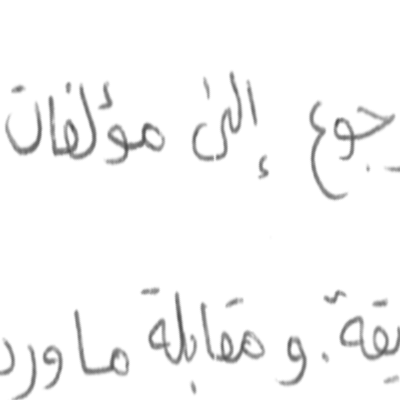 جوع إلى مؤلفات
يقة. ومقابلة ما ورد